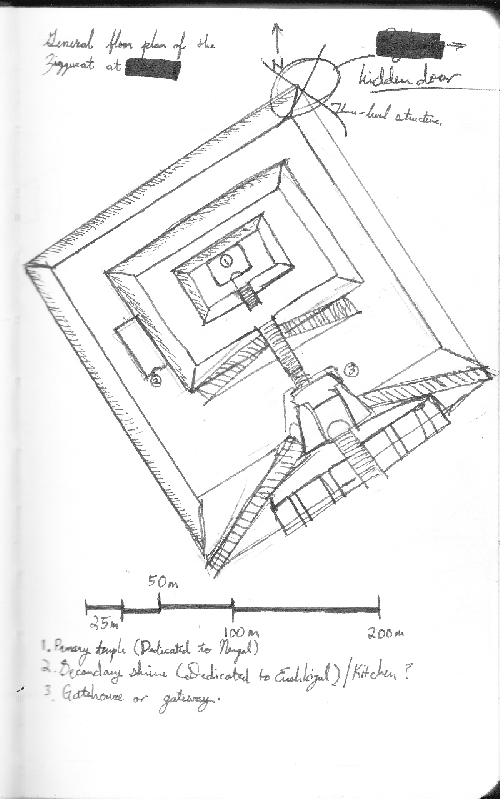 General floor plan of the
Ziggurat at
N
hidden door
Three-level structure.
1
2
3
50m
25m
100m
200m
1. Primary temple (Dedicated to Nergal)
2. Secondary shrine (Dedicated to Ereshkigal)/Kitchen?
3. Gatehouse or gateway.